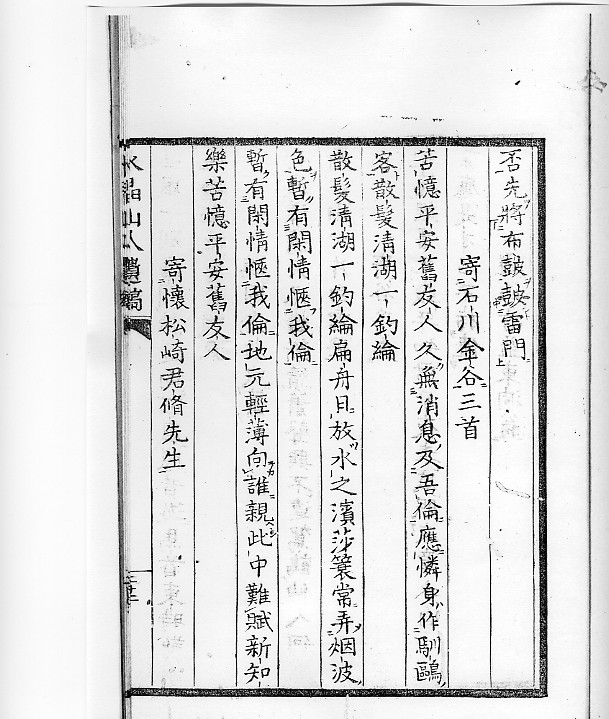 否先將布鼓鼓雷門
寄石川金谷三首
苦憶平安舊友人久無消息及吾倫應憐身作馴鷗
客散髮清湖一釣綸
散髮清湖一釣綸扁舟日放水之濱莎簑常弄烟波
色暫有閑情愜我倫
暫有閑情愜我倫地元輕薄向誰親此中難賦新知
樂苦憶平安舊友人
寄懷松崎君脩先生
水晶山人遺稿